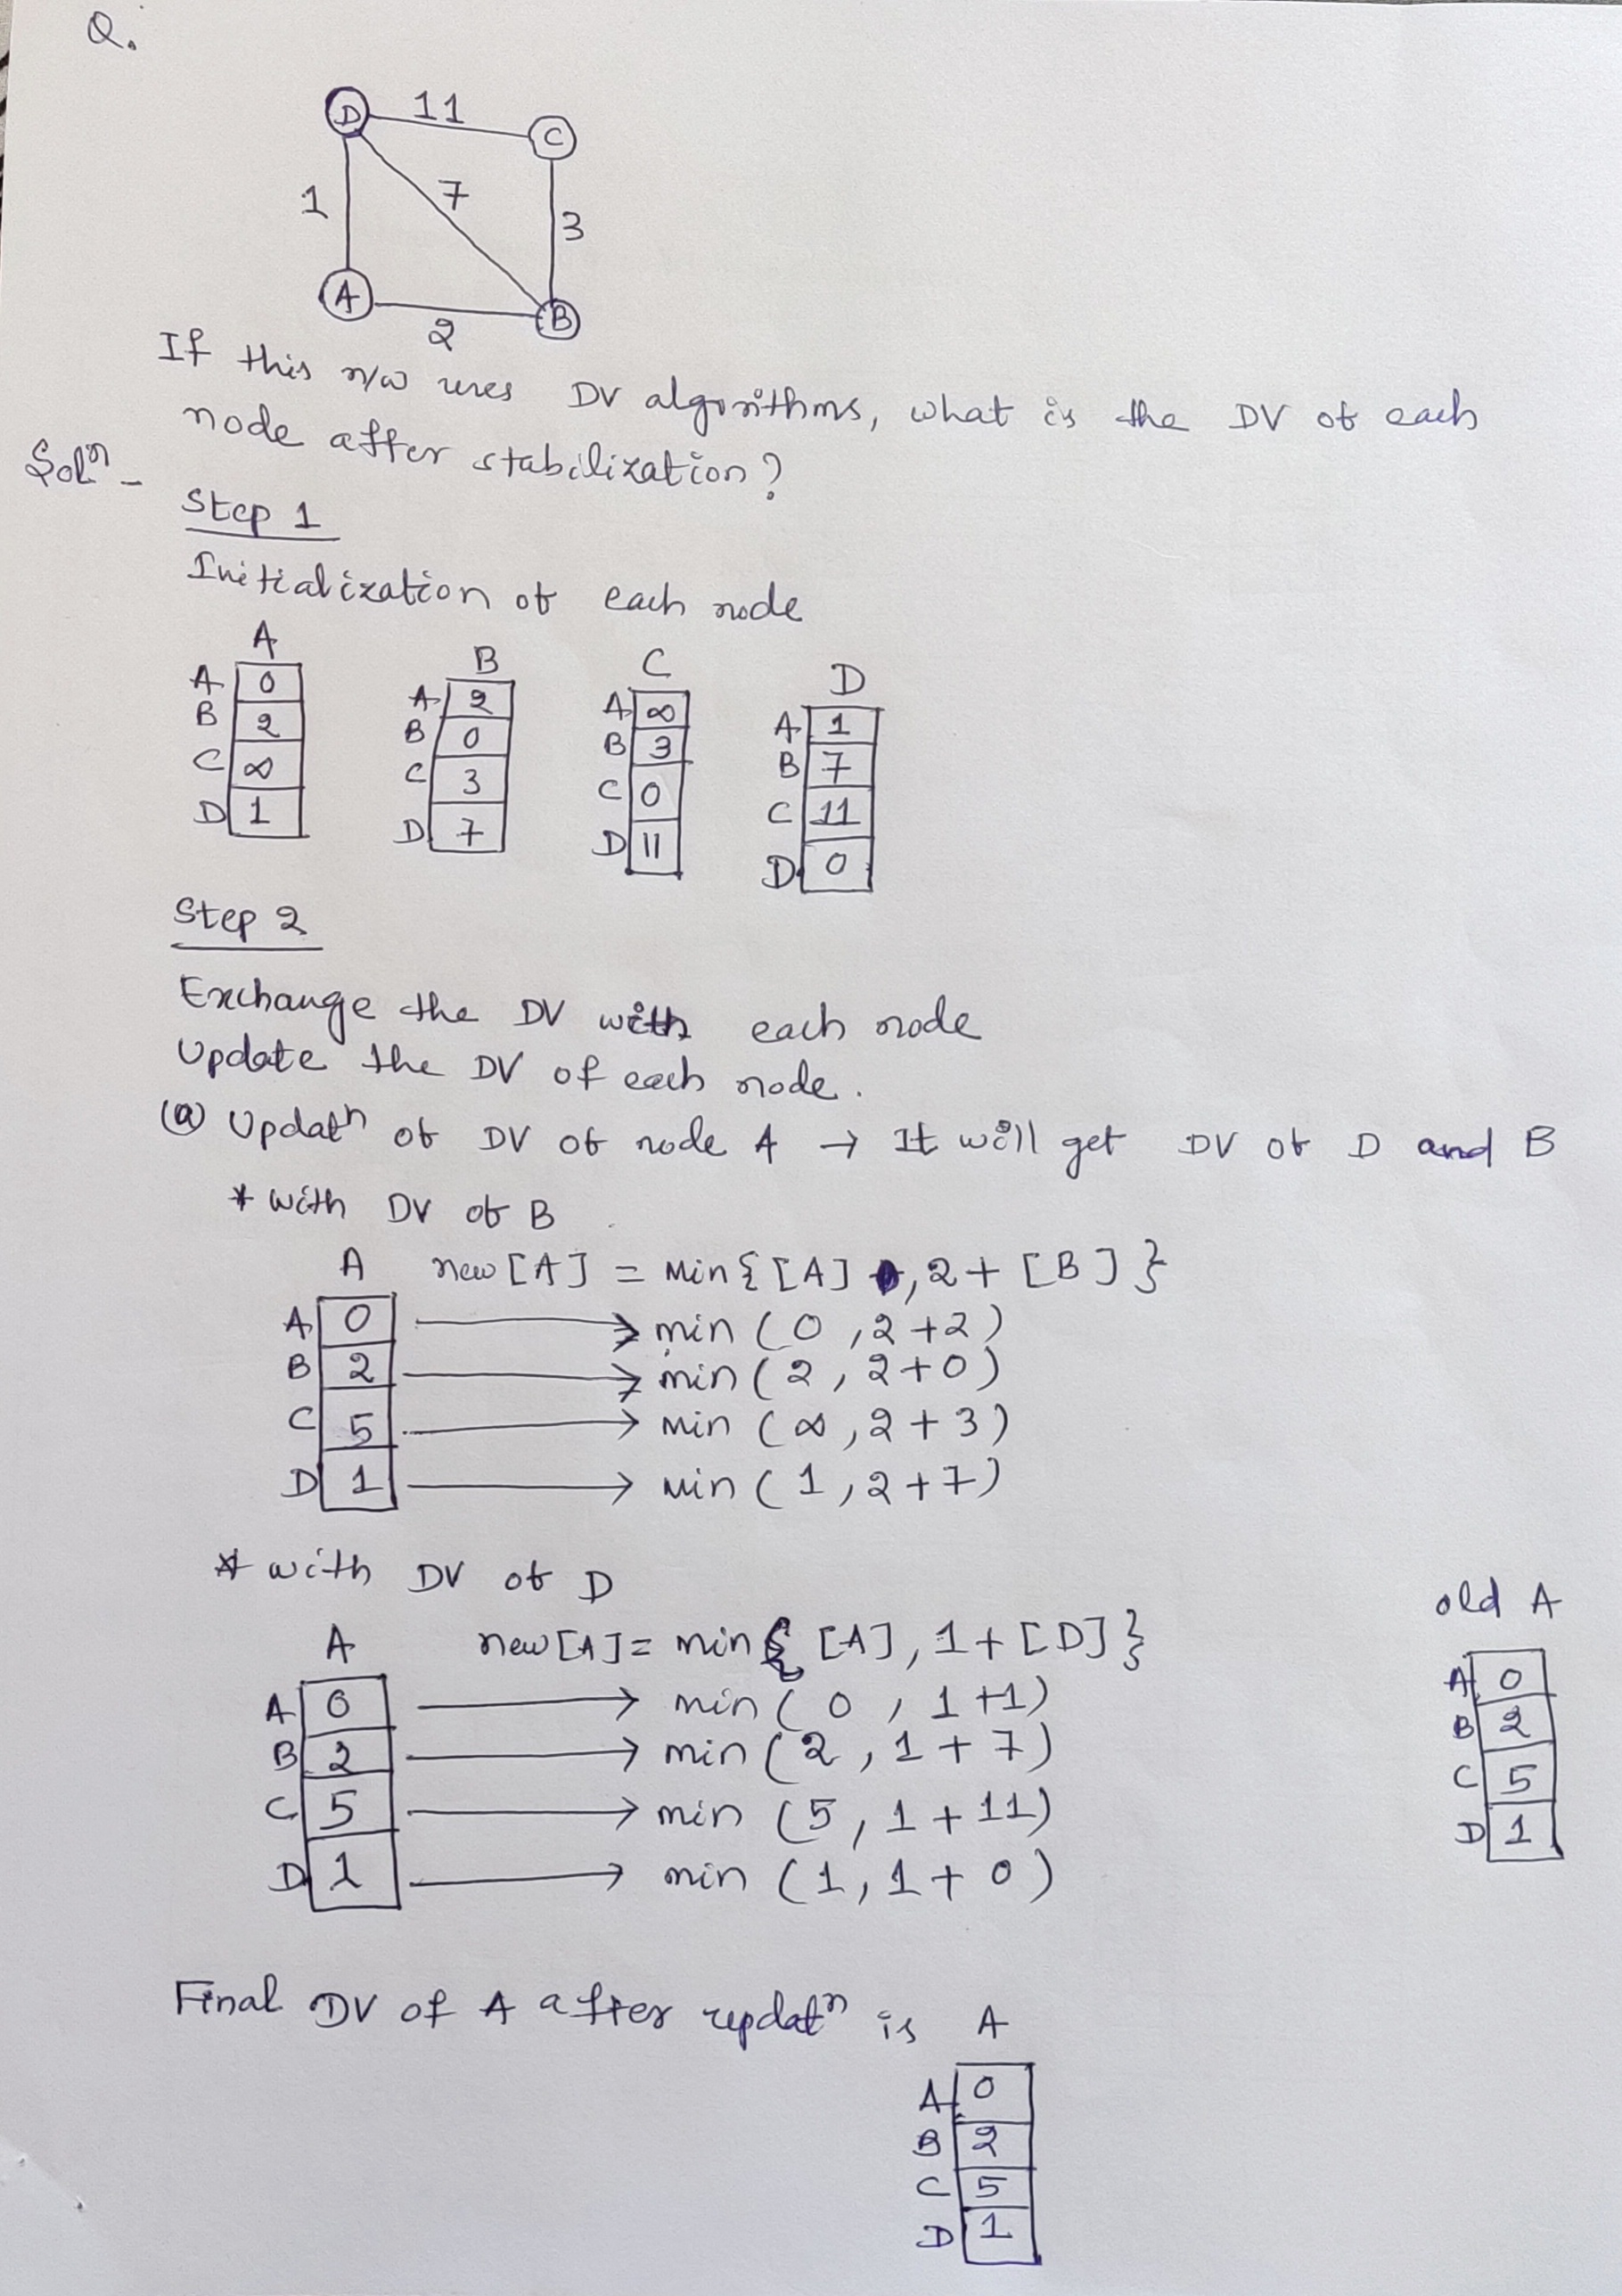 Q.
D 11 C
1 7 3
A 2 B
If this n/w uses DV algorithms, what is the DV of each
node after stabilization?
Solⁿ -
Step 1
Initialization of each node
A B C D
A 0 A 2 A ∞ A 1
B 2 B 0 B 3 B 7
C ∞ C 3 C 0 C 11
D 1 D 7 D 11 D 0
Step 2
Exchange the DV with each node
Update the DV of each node.
(a) Updatⁿ of DV of node A → It will get DV of D and B
* with DV of B
A new [A] = Min { [A] , 2 + [B] }
A 0 → min (0 , 2 + 2)
B 2 → min (2 , 2 + 0)
C 5 → min (∞ , 2 + 3)
D 1 → min (1 , 2 + 7)
* with DV of D
old A
A new [A] = min { [A] , 1 + [D] }
A 0 → min (0 , 1 + 1) A 0
B 2 → min (2 , 1 + 7) B 2
C 5 → min (5 , 1 + 11) C 5
D 1 → min (1 , 1 + 0) D 1
Final DV of A after updatⁿ is A
A 0
B 2
C 5
D 1